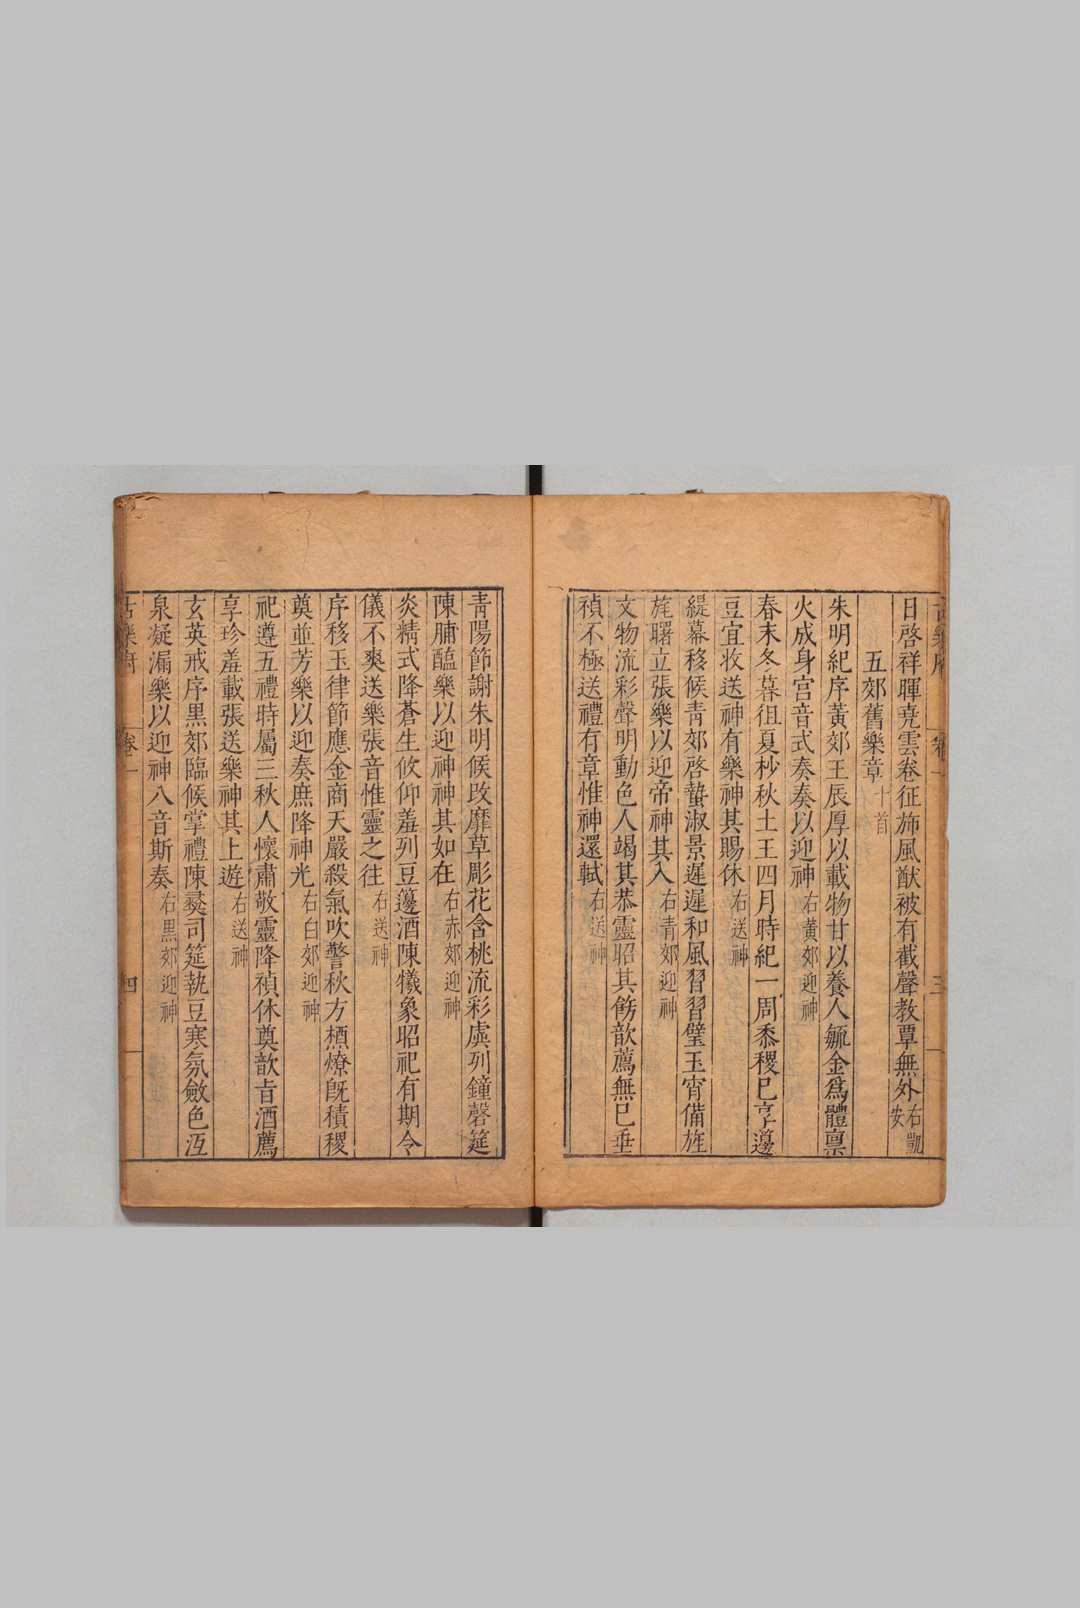 日啓祥暉堯雲卷征斾風猷被有截聲教覃無外右凱安
五郊舊樂章十首
朱明紀序黃郊王辰厚以載物甘以養人毓金爲體稟
火成身宮音式奏奏以迎神右黃郊迎神
春末冬暮徂夏杪秋土王四月時紀一周黍稷巳享籩
豆宜收送神有樂神其賜休右送神
緹幕移候青郊啓蟄淑景遲遲和風習習璧玉宵備旌
旄曙立張樂以迎帝神其入右青郊迎神
文物流彩聲明動色人竭其恭靈昭其飭歆薦無巳垂
禎不極送禮有章惟神還軾右送神
古樂府 卷一 三
青陽節謝朱明候攺靡草彫花含桃流彩虡列鐘磬筵
陳脯醢樂以迎神神其如在右赤郊迎神
炎精式降蒼生攸仰羞列豆籩酒陳犧象昭祀有期令
儀不爽送樂張音惟靈之往右送神
序移玉律節應金商天嚴殺氣吹警秋方槱燎既積稷
奠並芳樂以迎奏庶降神光右白郊迎神
祀遵五禮時屬三秋人懷肅敬靈降禎休奠歆旨酒薦
享珍羞載張送樂神其上遊右送神
玄英戒序黑郊臨候掌禮陳彞司筵執豆寒氛斂色沍
泉凝漏樂以迎神八音斯奏右黑郊迎神
古樂府 卷一 四